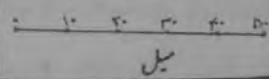 ۰ ۱۰ ۲۰ ۳۰ ۴۰ ۵۰
میل